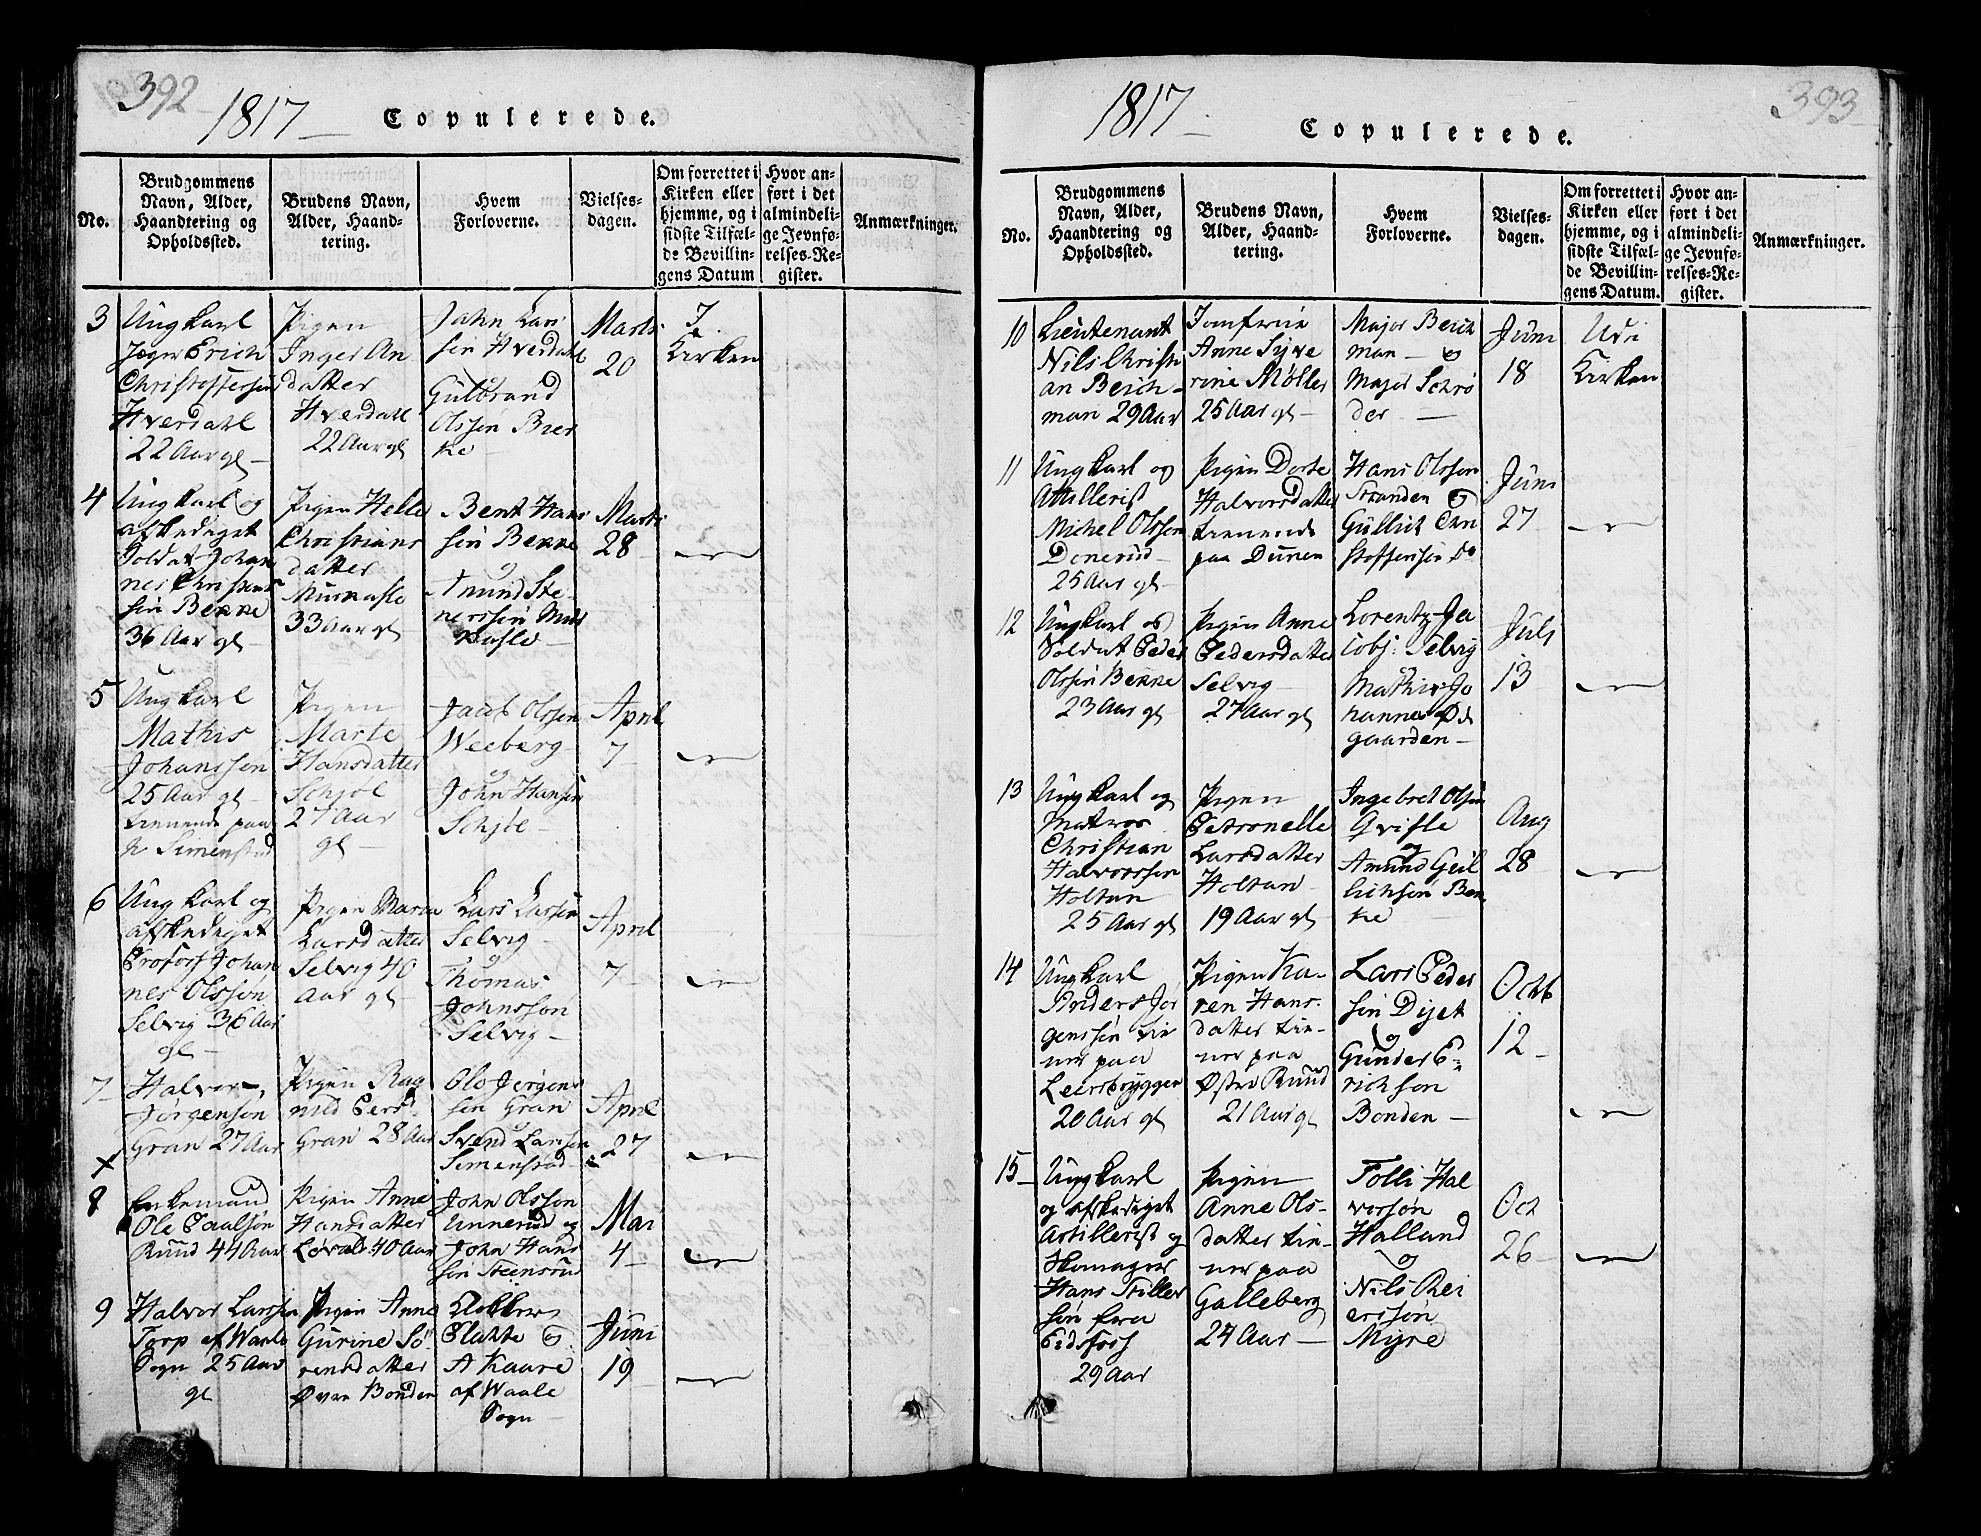 392
1817
Copulerede.
No.
Brudgommens
Navn, Alder,
Haandtering og
Opholdssted.
Brudens Navn,
Alder, Haand-
tering.
Hvem
Forloverne.
Vielses-
dagen.
Om forrettet i
Kirken eller
hjemme, og i
sidste Tilfæl-
de Bevillin-
gens Datum
Hvor an-
ført i det
almindeli-
ge Jevnfø-
relses-Re-
gister.
Anmærkninger.
3
Ung Karl
Jeger Erich
Christoffersøn
Hverdahl
22 Aar gl
Pigen
Inger An
datter
Hverdahl
22 Aar gl
John Lars
søn Hverdahl
Gulbrand
Olssøn Bier
ke
Marts
20
I
Kirken
4
Ung Karl og
afskediget
Soldat Johan
nes Christens
søn Bekke
36 Aar gl
Pigen Helle
Christians
datter
33 Aar gl
Bent Hans
søn Bekke
og
Amund Ste
nerssøn
Marts
28
5
Ung Karl
Mathis
Johanssøn
25 Aar gl
tienende paa
Simenstad
Pigen
Marte
Hansdatter
Schjøl
27 Aar
gl
Jacob Olssøn
Weeberg
og
John Hansøn
Schjøl
April
7
6
Ung Karl og
afskediget
Profos Johan
nes Olssøn
Selvig 36 Aar
gl
Pigen Maria
Larsdatter
Selvig 40
Aar gl
Lars Larsøn
Selvig
og
Thomas
Johnssøn
Selvig
April
7
7
Halvor
Jørgensøn
Gran 27 Aar
Pigen Rag
nild Pers
Gran 28 Aar
Ole Jørgens
søn Gran
Svend Larsøn
Simenstad
April
27
8
Enkemand
Ole Paalsøn
Ruud 44 Aar
Pigen Anne
Hansdatter
Løvald 40 Aar
John Olssøn
Unnerud og
John Hans
søn Steensrud
Mai
4
9
Halvor Larssøn
Torp af Waale
Sogn 25 Aar
gl
Pigen Anne
Gurine Sø
rensdatter
Øvre Bonden
Klokker
Plahte og
A Kaare
af Waale
Sogn
Juni
19
393
1817
Copulerede.
No.
Brudgommens
Navn, Alder,
Haandtering og
Opholdssted.
Brudens Navn,
Alder, Haand-
tering.
Hvem
Forloverne.
Vielses-
dagen.
Om forrettet i
Kirken eller
hjemme, og i
sidste Tilfæl-
de Bevillin-
gens Datum.
Hvor an-
ført i det
almindeli-
ge Jevnfø-
relses-Re-
gister.
Anmærkninger.
10
Lieutenant
Nils Christi
an Beich-
man 29 Aar
Jomfrue
Anne Syve
rine Møller
25 Aar gl
Major Beich
man og
Major Schrø
der
Juni
18
Kirken
11
Ung Karl og
Attillerist
Michel Olssøn
Donerud
25 Aar gl
Pigen Dorte
Halvorsdatter
tienende
paa Dunen
Hans Olssøn
Stranden og
Gullich Cri
stoffersøn do
Juni
27
12
Ung Karl og
Soldat Peder
Olssøn Bekke
23 Aar gl
Pigen Anne
Pedersdatter
Selvig
27 Aar gl
Lorentz Ja
cobs: Selvig
Mathis Jo
hannes Øde
gaarden
Juli
13
13
Ung Karl og
Matros
Christian
Halvorssøn
Holtan
25 Aar gl
Pigen
Petronelle
Larsdatter
Holtan
19 Aar gl
Ingebret Olsøn
Qvisle
og
Amund Geil
erichsøn Bek
ke
Aug
28
14
Ung Karl
Anders Jør
genssøn tie
ner paa
Leirsbryggen
20 Aar gl
Pigen Ka-
ren Hans
datter tie-
ner paa
Østre Ruud
21 Aar gl
Lars Peder
søn Dijet
og
Gunder E-
richsøn
Bonden
Octb
12
15
Ung Karl
og afskediget
Artillerist og
Skomager
Hans Tiller
søn fra
Eidsfoss
29 Aar
Pigen
Anne Ols-
datter tie-
ner paa
Galleberg
24 Aar
Tolli Hal
vorsøn
Halland
og
Nils Rei
erssøn
Myre
Oct
26